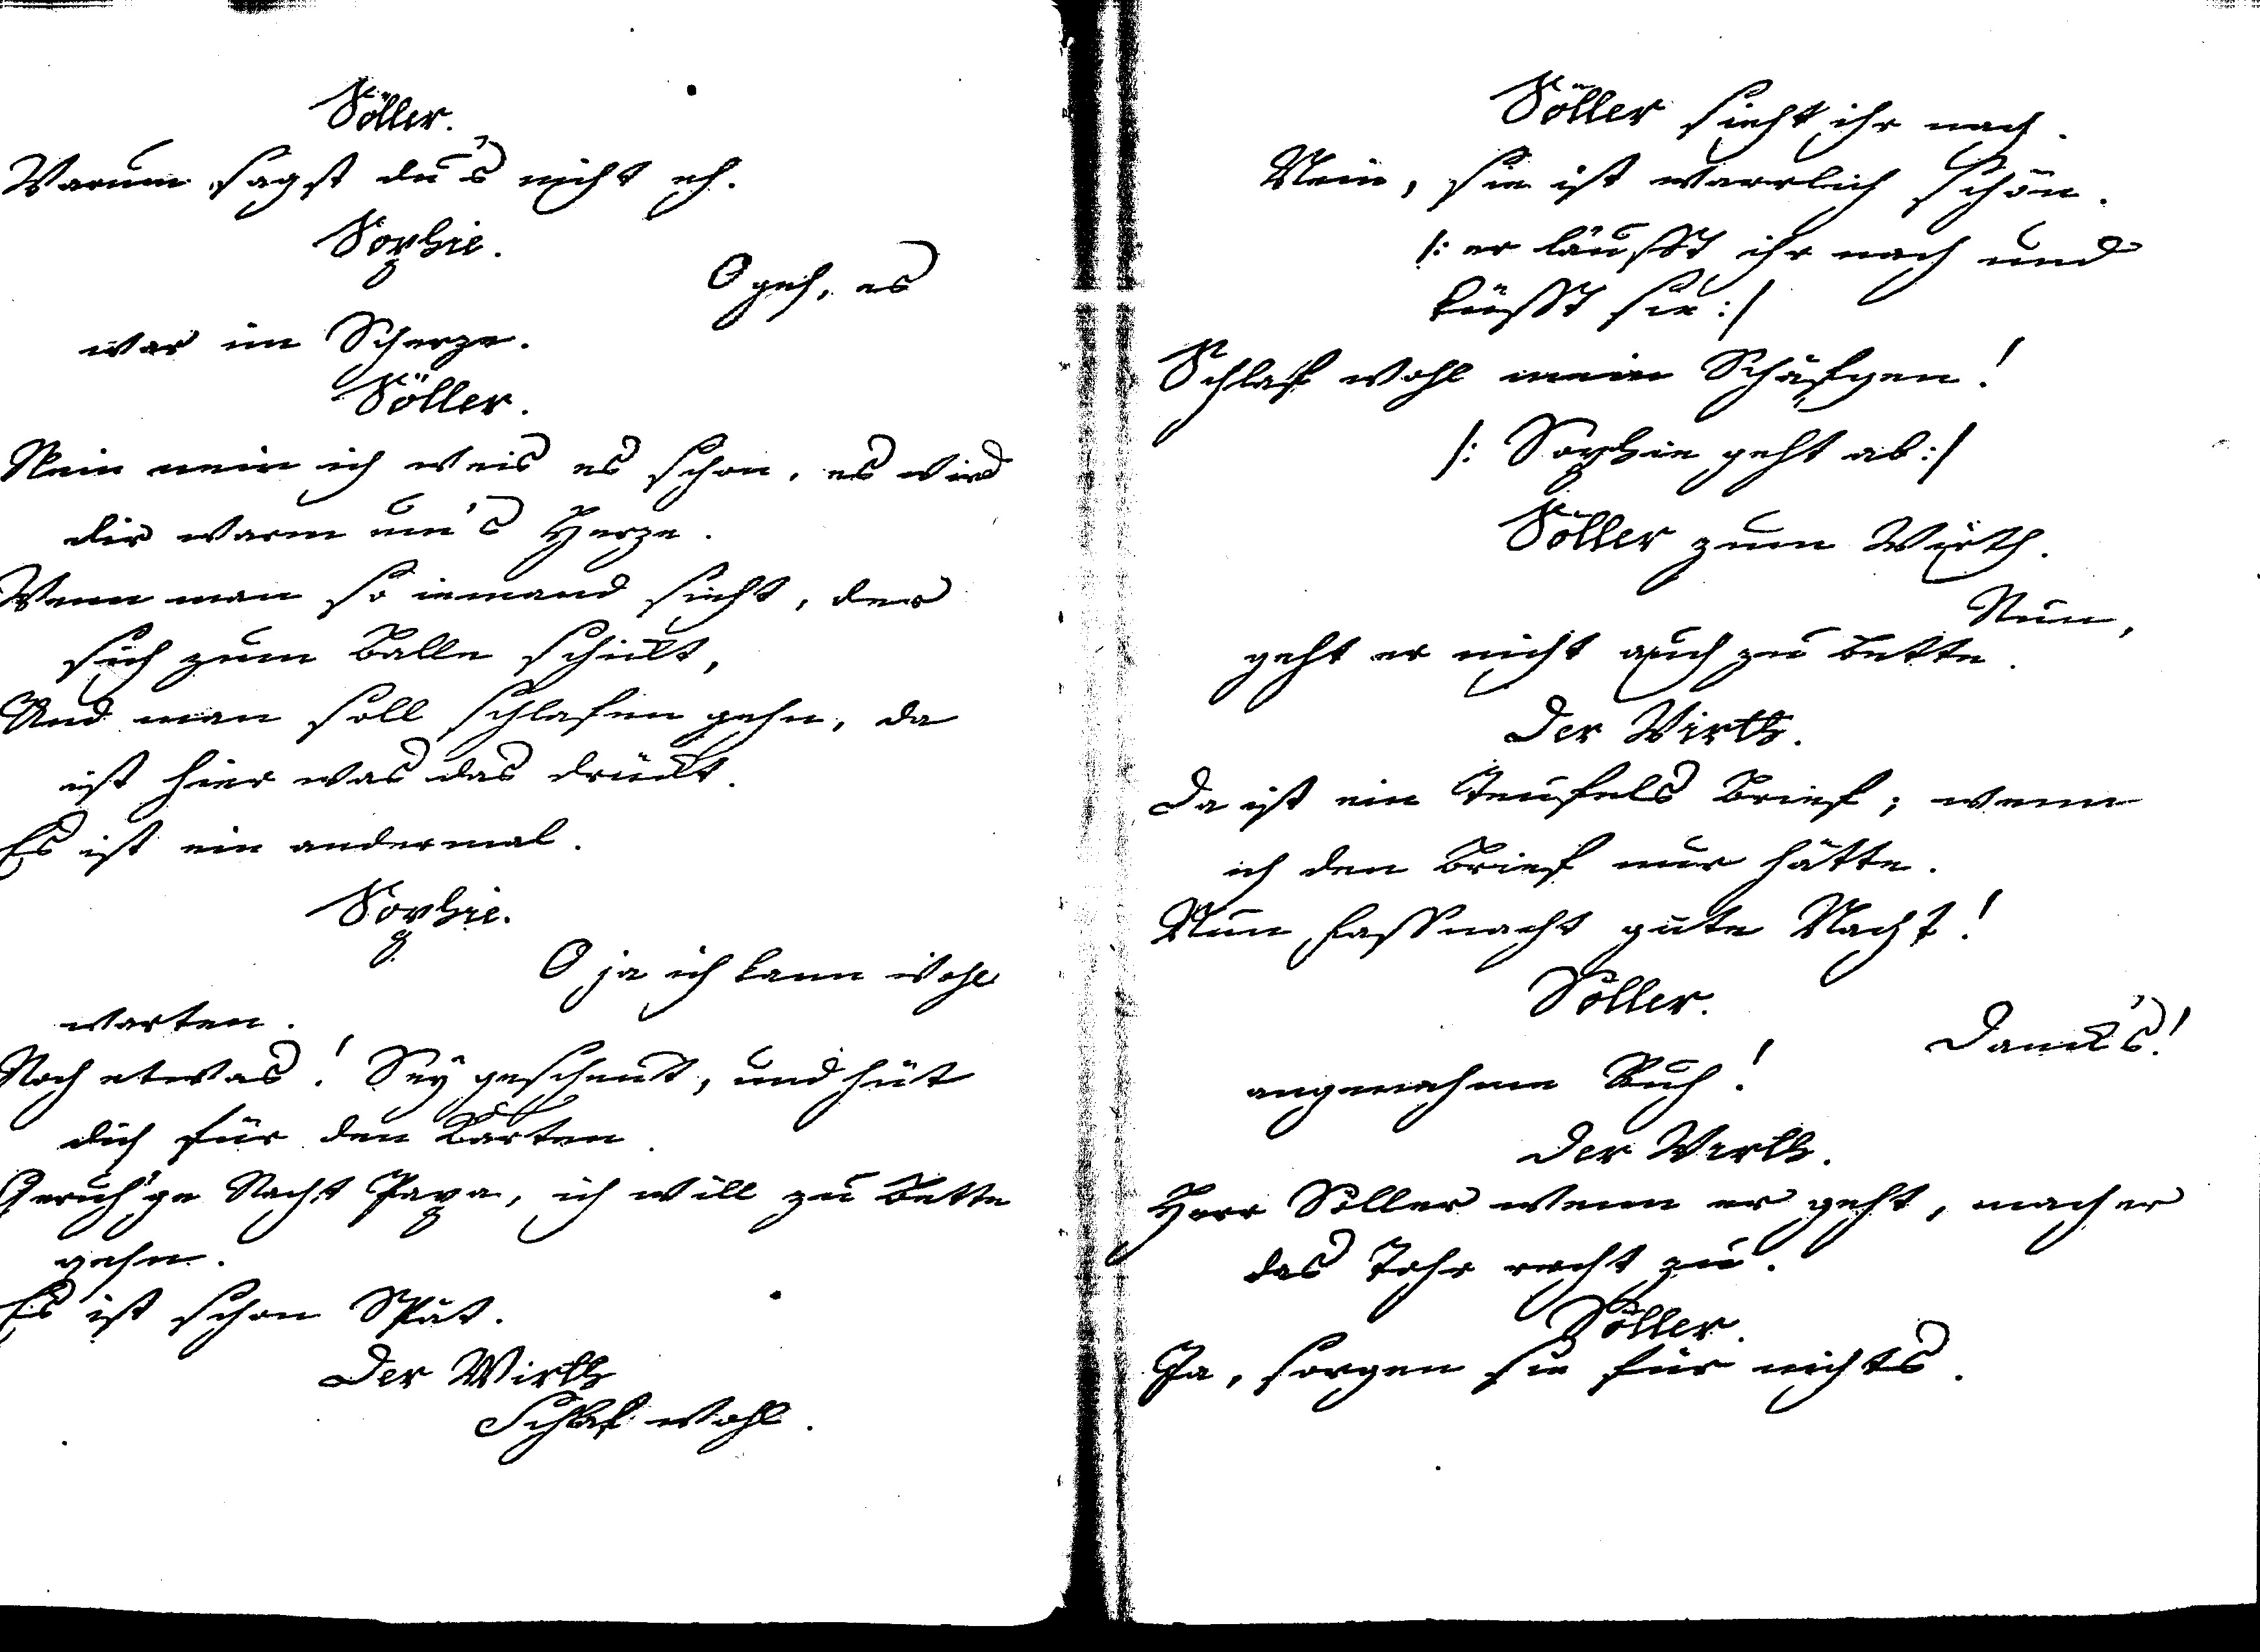 Söller.
Warum sagst du's nicht eh.
Sophie.
O geh, es
war im Scherze.
Söller.
Nein nein ich weis es schon, es wird
dir warm um's Herze.
Wenn man so iemand sieht, der
sich zum Balle schickt,
Und man soll schlafen gehn, da
ist hier was das drückt.
Es ist ein andermal.
Sophie.
O ja ich kann wohl
warten.
Noch etwas! Sey gescheut, und hüt
dich für den Karten.
Geruh'ge Nacht Papa, ich will zu Bette
gehn.
Es ist schon Spät.
Der Wirth
Schlaf wohl.
Söller sieht ihr nach.
Nein, sie ist warrlich schön.
/: er läufft ihr nach und
küsst sie :/
Schlaf wohl mein Schäfgen!
/: Sophie geht ab :/
Söller zum Wirth.
Nun,
geht er nicht auch zu Bette.
Der Wirth.
Da ist ein Teufels Brief; wenn
ich den Brief nur hätte.
Nun Fassnacht gute Nacht!
Söller.
Danck's!
angenehme Ruh!
Der Wirth.
Herr Söller wenn er geht, mach er
das Tohr recht zu.
Söller.
Ja, sorgen sie für nichts.